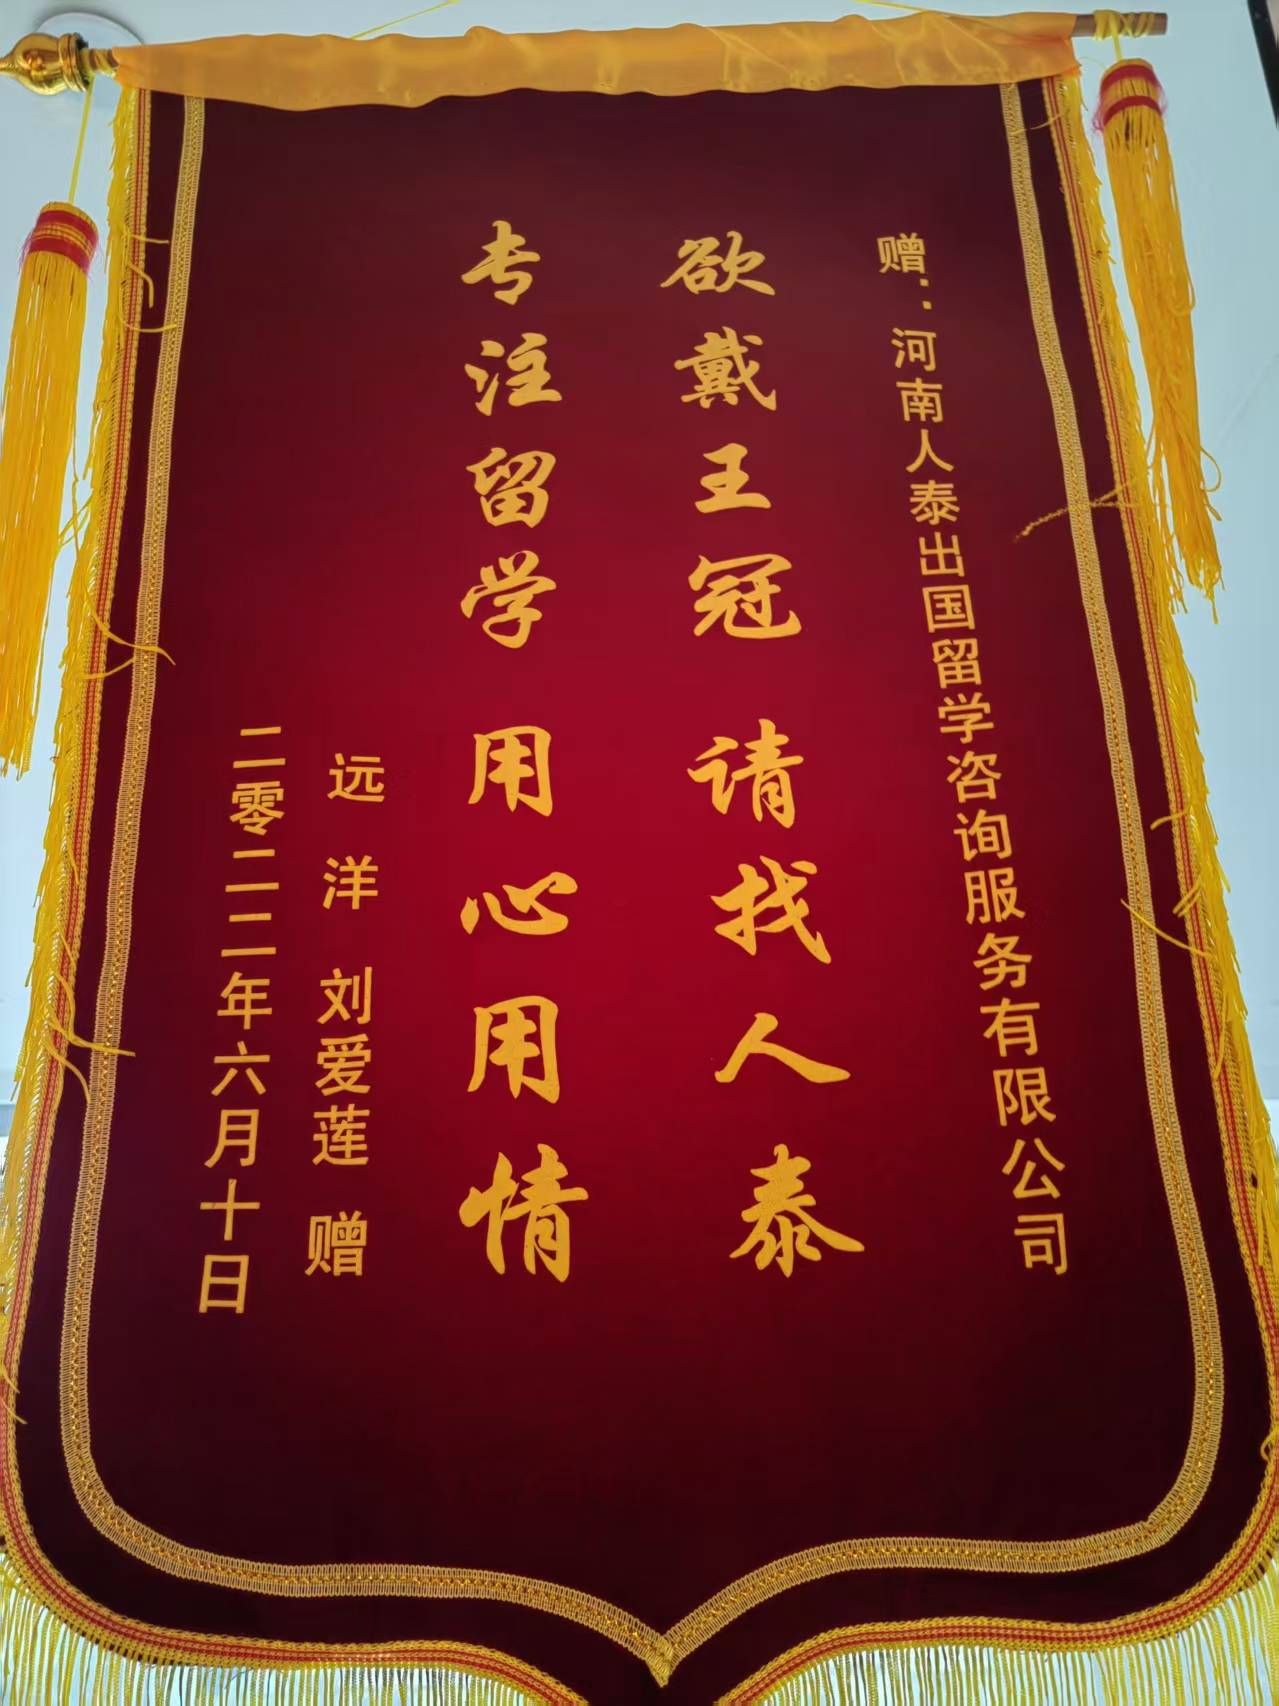 赠：河南人泰出国留学咨询服务有限公司
欲戴王冠 请找人泰
专注留学 用心用情
远洋 刘爱莲 赠
二零二二年六月十日